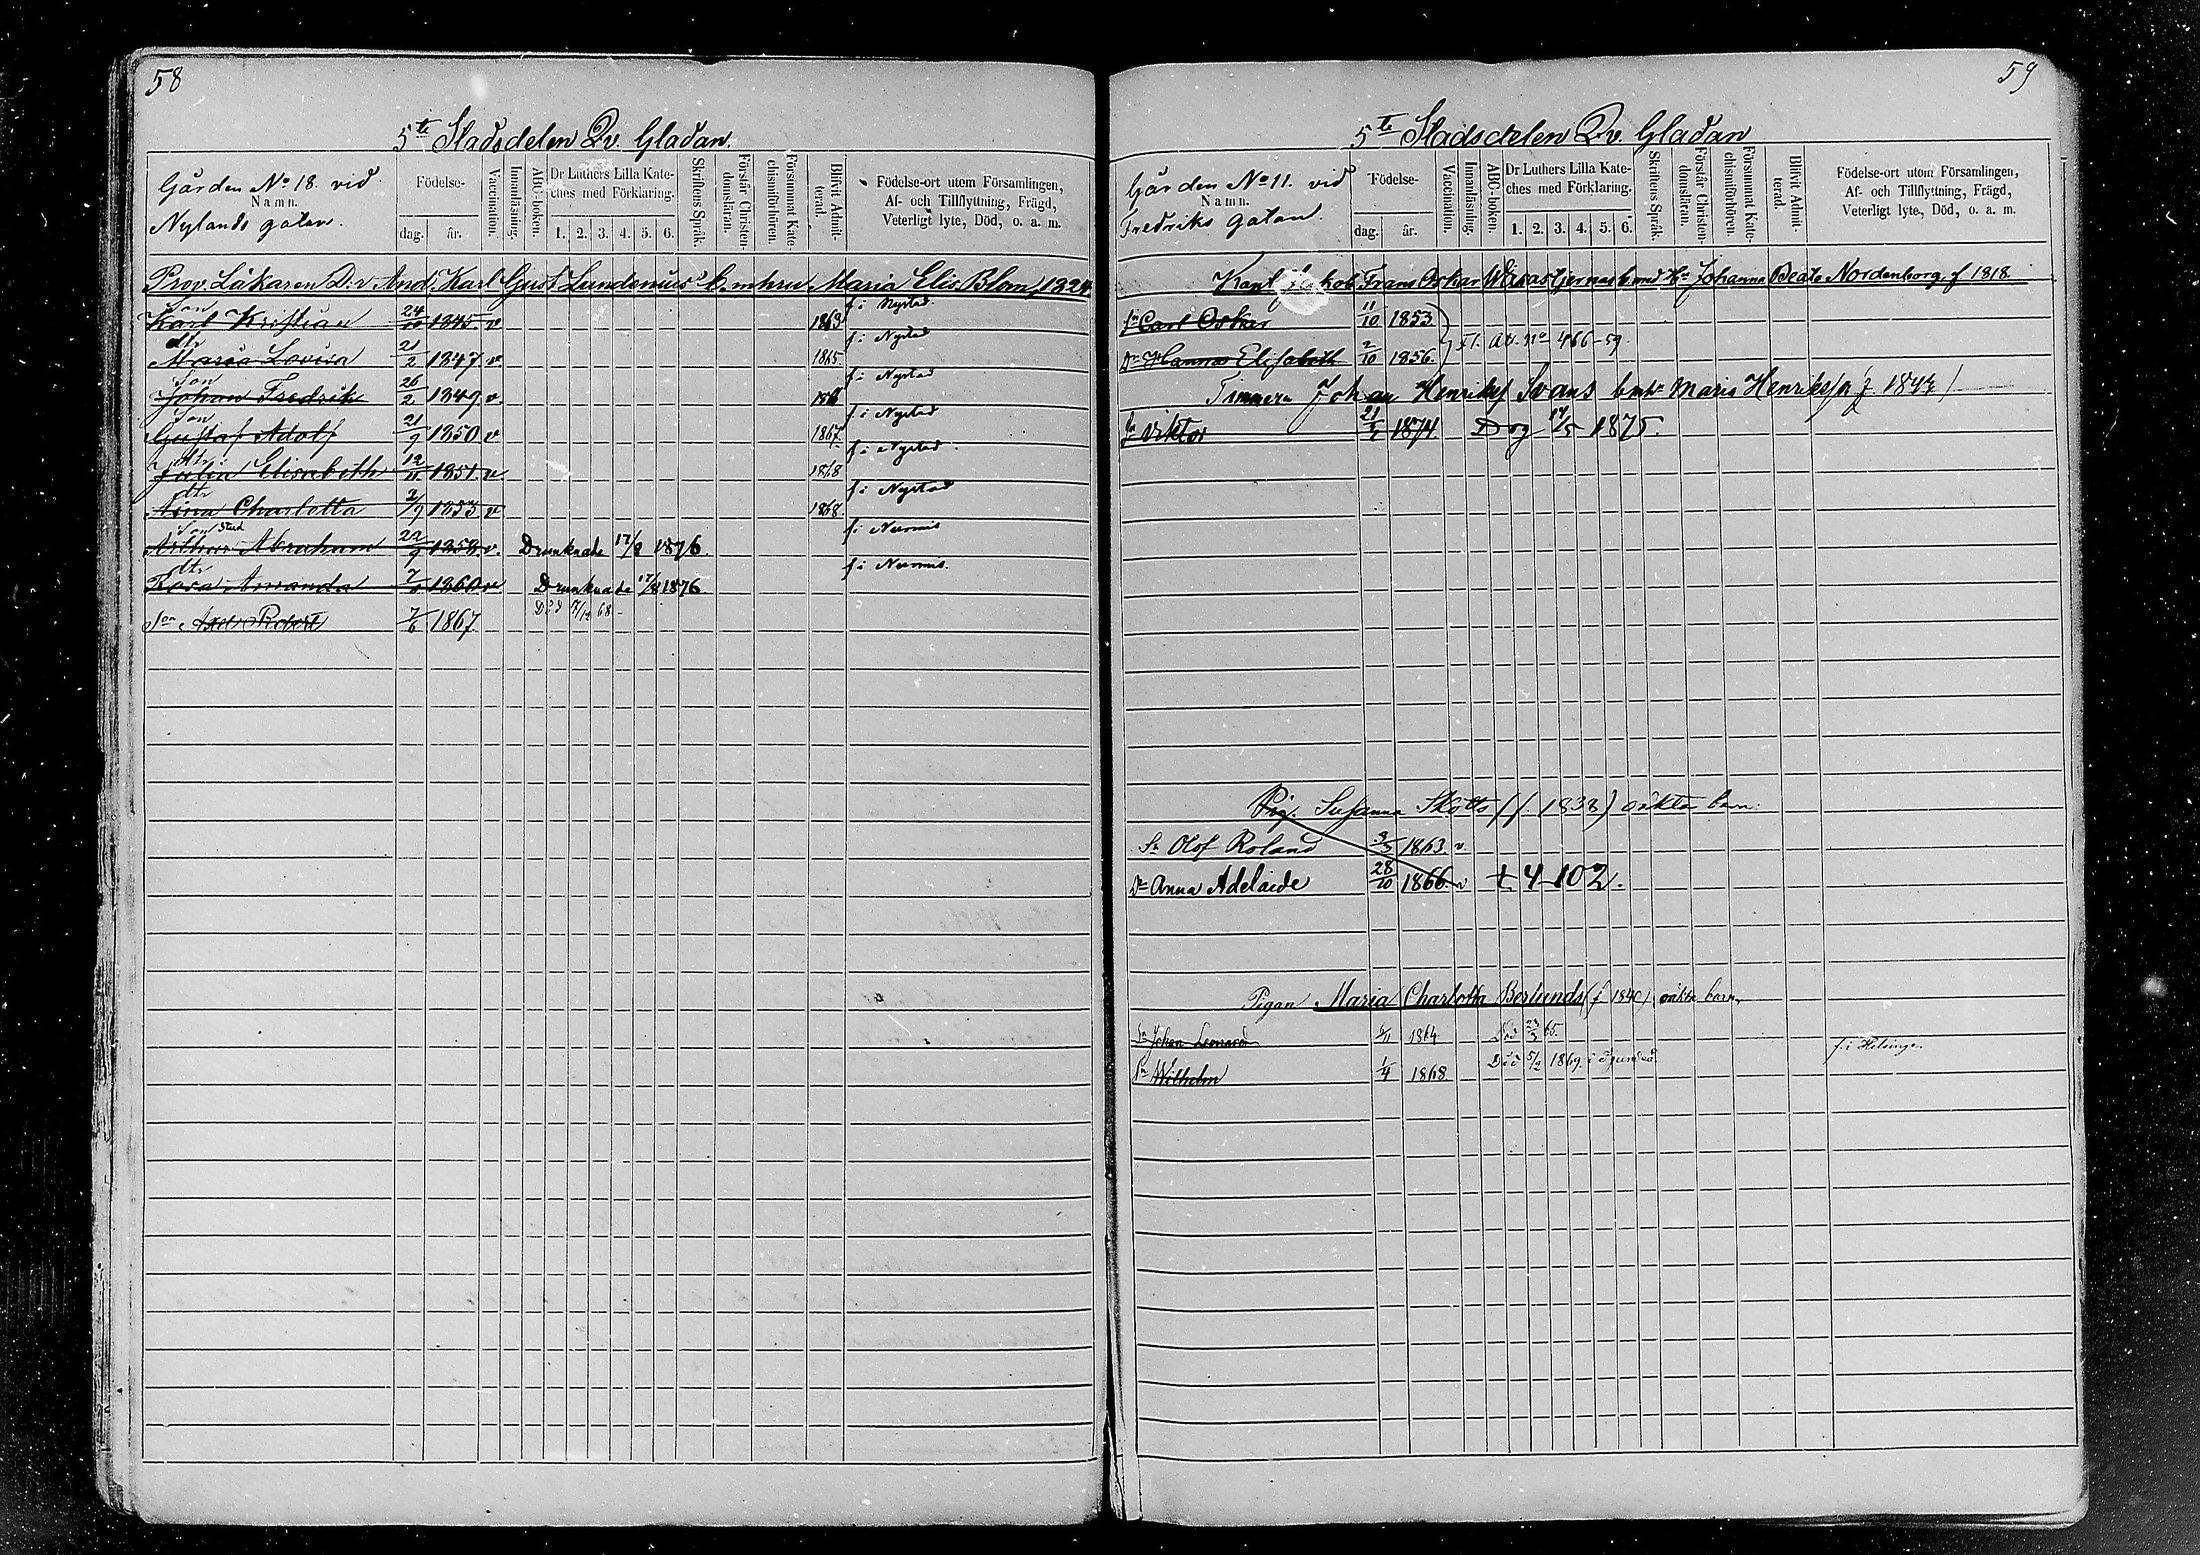 58
5te Stadsdelen Qv. Gladan.
Gården No 18. vid
Namn.
Nylands gatan.
Födelse-
dag. år.
Vaccination.
Innanläsning.
ABC-boken.
Dr Luthers Lilla Kate-
ches med Förklaring.
1. 2. 3. 4. 5. 6.
Skriftens Språk.
Förstår Christen-
domsläran.
Försummat Kate-
chismiförhören.
Blifvit Admit-
terad.
Födelse-ort utom Församlingen,
Af- och Tillflyttning, Frägd,
Veterligt lyte, Död, o. a. m.
Prov. Läkaren D:r And. Karl Gust Lundenius' b. m. hru Maria Elis Blom f 1824.
Son f i Nystad
Karl Kristian 24/10 1845 v 1863
dtr f i Nystad
Maria Lovisa 21/2 1847 v 1865
Son f i Nystad
Johan Fredrik 26/2 1849 v.
Son f i Nystad
Gustaf Adolf 21/9 1850 v 1867
dtr f i Nystad
Julia Elisabeth 12/11 1851 v 1868
dtr f i Nystad
Aina Charlotta 2/9 1853 v 1868.
Son Stud f i Nurmis
Arthur Abraham 22/9 1858. v. Drunknade 17/8 1876.
dtr f i Nurmis.
Rosa Amanda 1860 v Drunknade 17/8 1876
Son Axel Robert 7/6 1867 Död 7/12 68
59
5te Stadsdelen Qv. Gladan
Gården No 11. vid
Namn.
Fredriks gatan.
Födelse-
dag. år.
Vaccination.
Innanläsning.
ABC-boken.
Dr Luthers Lilla Kate-
ches med Förklaring.
1. 2. 3. 4. 5. 6.
Skriftens Språk.
Förstår Christen-
domsläran.
Försummat Kate-
chismiförhören.
Blifvit Admit-
terad.
Födelse-ort utom Församlingen,
Af- och Tillflyttning, Frägd,
Veterligt lyte, Död, o. a. m.
Frans Oskar Wasastjernas b. med Johanna Beate Nordenborg f 1818
Sn Carl Oskar 11/10 1853
Dr Hanna Elisabeth 2/10 1856. No 466-59.
Johan Henriks Svans b m Maria Henriksfa
Sn Viktor 1874. Dog 14/5 1875.
Pig. Susanna Skotts (f 1838) oäkta barn:
Sn Olof Roland 1863 v
Dr Anna Adelaide 28/10 1866 v 4-102.
Pigan Maria Charlotta Berlunds (f 1840) oäkta barn,
Sn Johan Leonard 1864 Död 65.
Sn Wilhelm 1/4 1868. Död 5/2 1869. i f. i Helsinge.